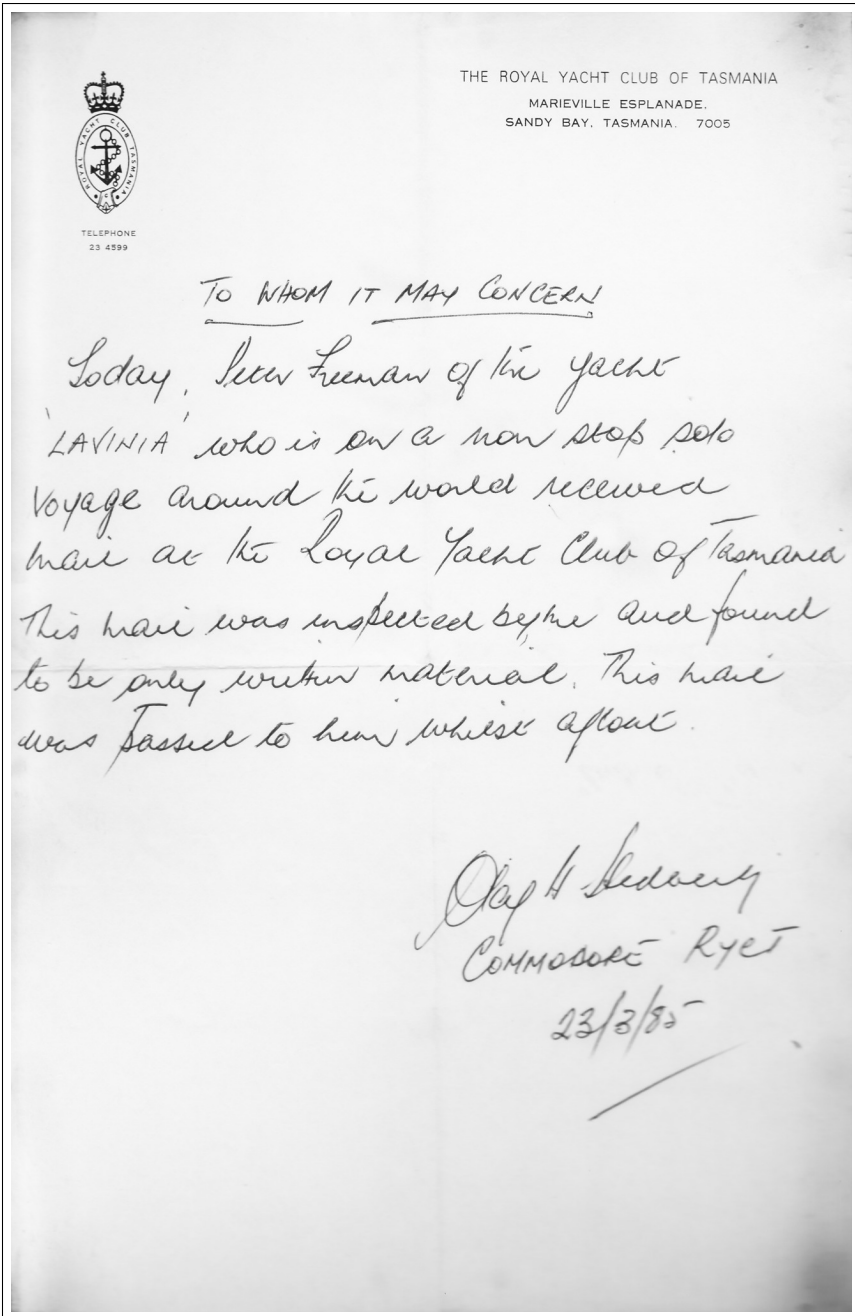 THE ROYAL YACHT CLUB OF TASMANIA
MARIEVILLE ESPLANADE.
SANDY BAY, TASMANIA. 7005
ROYAL YACHT CLUB TASMANIA
TELEPHONE
23 4599
TO WHOM IT MAY CONCERN
Today, Peter Freeman of the yacht
'LAVINIA' who is on a non stop solo
voyage around the world received
mail at the Royal Yacht Club of Tasmania
This mail was inspected by me and found
to be only written material. This mail
was passed to him whilst afloat.
Olaf H
COMMODORE RYCT
23/3/85